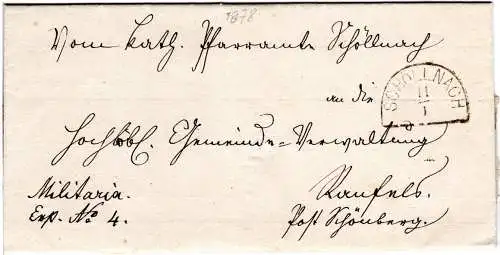 1878
Vom kath. Pfarramte Schöllnach
SCHÖLLNACH
11
1
an die
Hochlöbl. Gemeinde-Verwaltung
Militaria.
Exp. No 4.
Ranfels.
Post Schönberg.